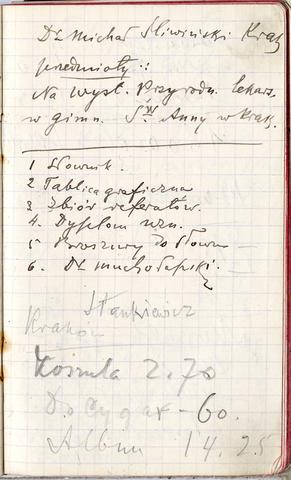 Dr Michał Śliwiński Krak
przedmioty:
Na wyst. Przyrodn. lekars.
w gimn. Św. Anny w Krak.
1 Słownik.
2 Tablica graficzna
3 Zbiór referatów.
4. Dyplom uzn.
5 Broszury do Słown
6. Dr
Stankiewicz
Kraków
Koszula 2.70
Do cygar - 60.
Album 14.25